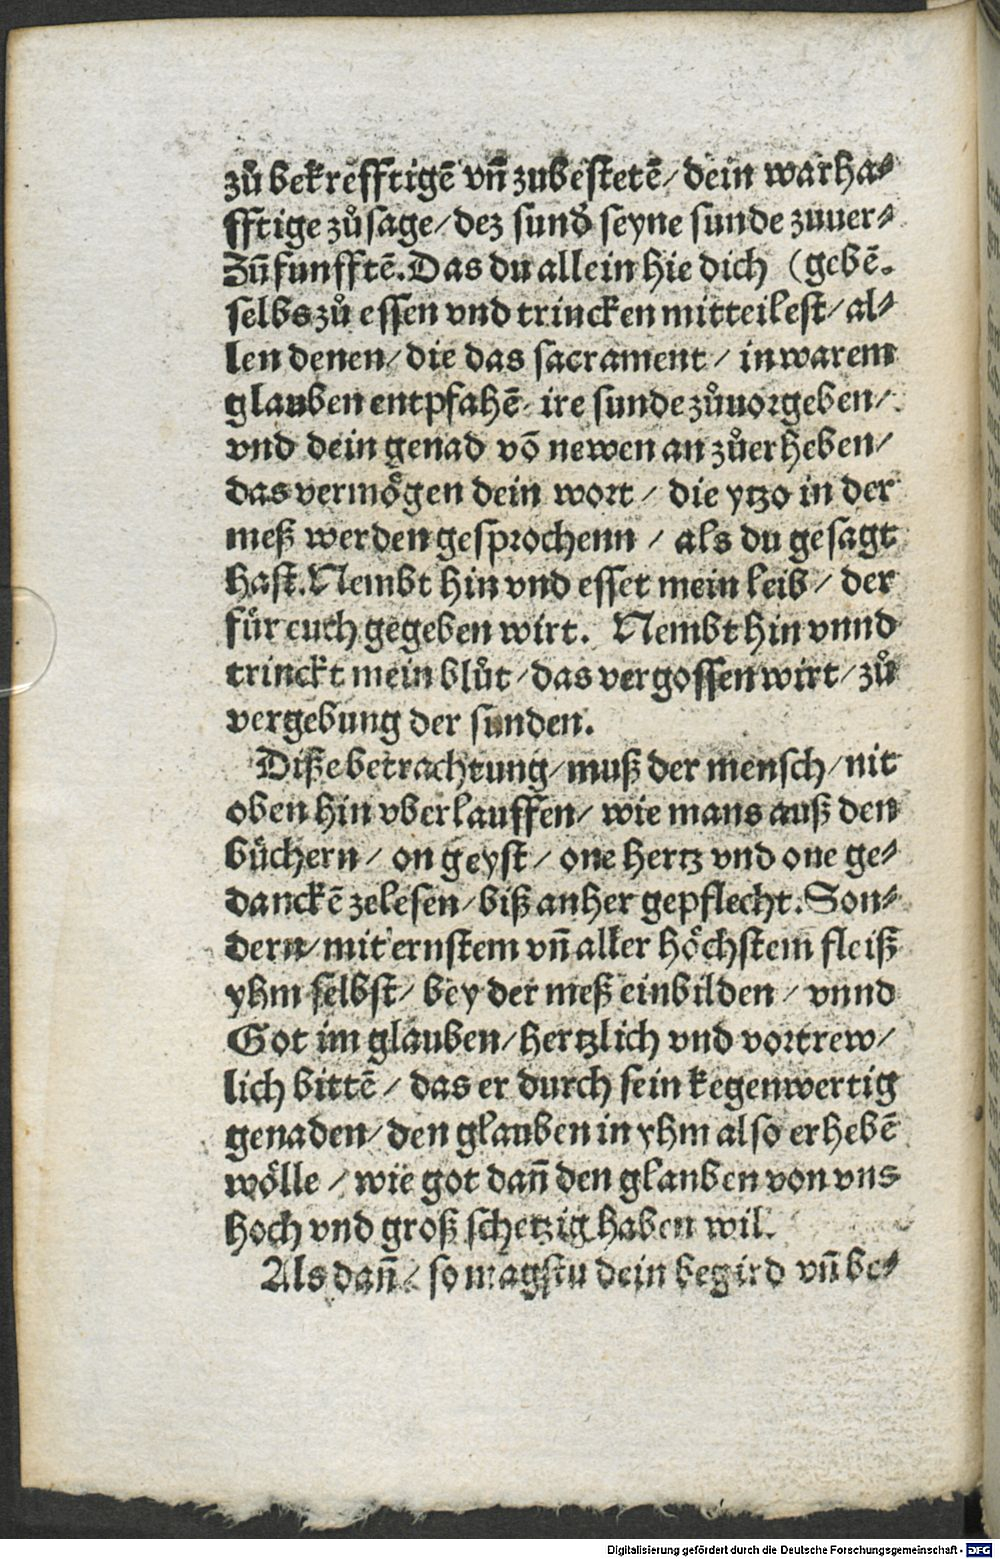 zů bekrefftigē vñ zubestetē/ dein warha⸗
fftige zůsage/ dez sund᷑ seyne sunde zuuer⸗
Zũ funfftē. Das du allein hie dich (gebē.
selbs zů essen vnd trincken mitteilest/ al⸗
len denen/ die das sacrament / in warem
glauben entpfahē/ ire sunde zůuorgeben/
vnd dein genad vō newen an zůerheben/
das vermoͤgen dein wort / die ytzo in der
meß werden gesprochenn / als du gesagt
hast. Nembt hin vnd esset mein leib / der
fuͤr euch gegeben wirt. Nembt hin vnnd
trinckt mein blůt / das vergossen wirt / zů
vergebung der sunden.
Diße betrachtung/ muß der mensch/ nit
oben hin vberlauffen/ wie mans auß den
buͤchern / on geyst / one hertz vnd one ge⸗
danckē zelesen/ biß anher gepflecht. Son⸗
dern/ mit ernstem vñ aller hoͤchstem fleiß
yhm selbst/ bey der meß einbilden / vnnd
Got im glauben/ hertzlich vnd vortrew/
lich bittē / das er durch sein kegenwertig
genaden/ den glauben in yhm also erhebē
woͤlle / wie got dañ den glauben von vns
hoch vnd groß schetzig haben wil.
Als dañ / so magstu dein begird vñ be⸗
Digitalisierung gefördert durch die Deutsche Forschungsgemeinschaft - DFG